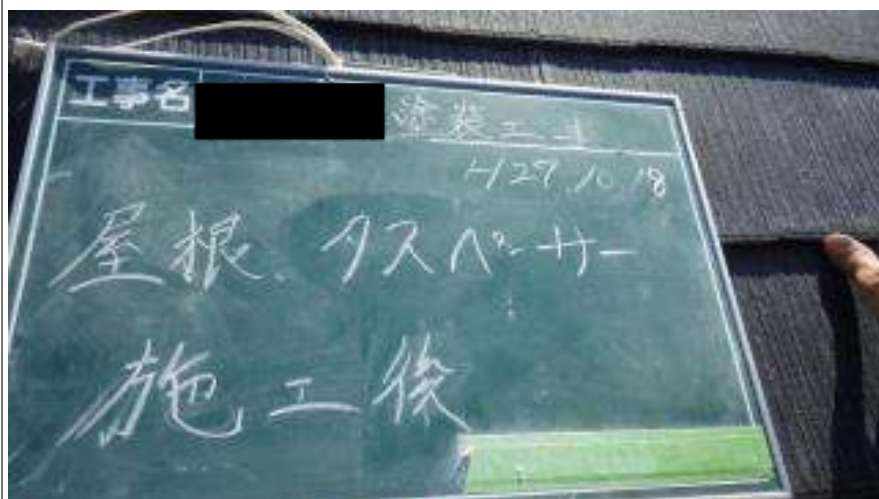 工事名 塗装工事
H27.10.18
屋根、タスペーサー
施工後